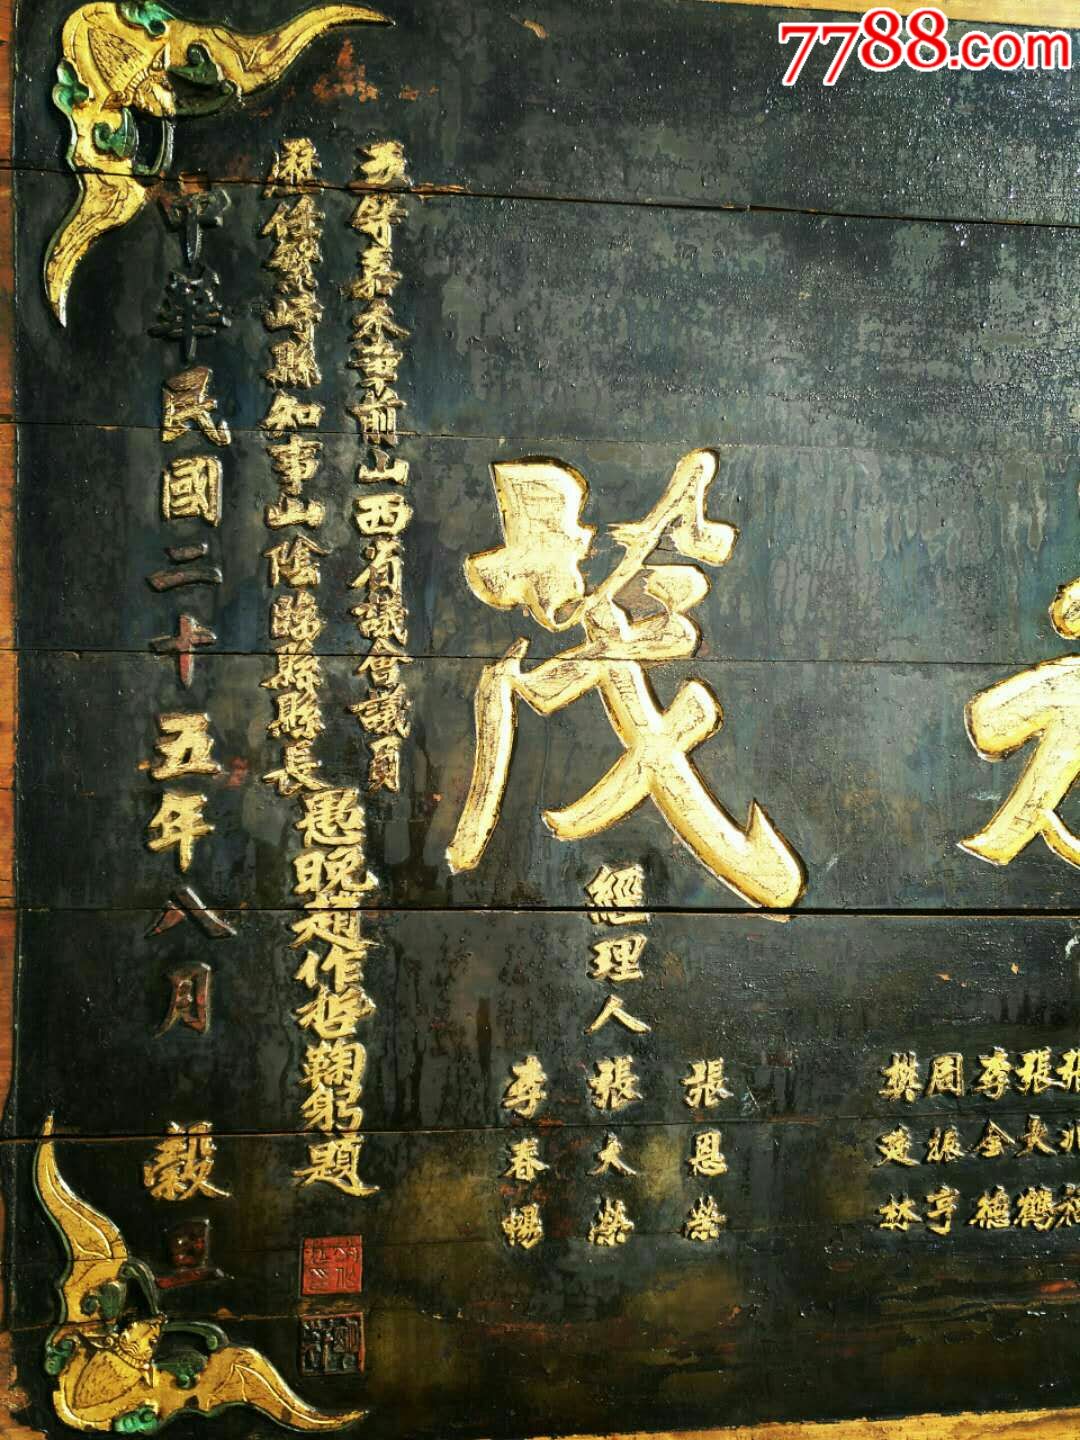 7788.com
張長鶴
李金德
周振亨
樊建林
茂
張恩榮
經理人張大榮
李春暢
五等嘉禾章前山西省議會議員
歷任繁峙縣知事山陰臨縣縣長
愚晚趙作哲鞠躬題
中華民國二十五年八月穀旦